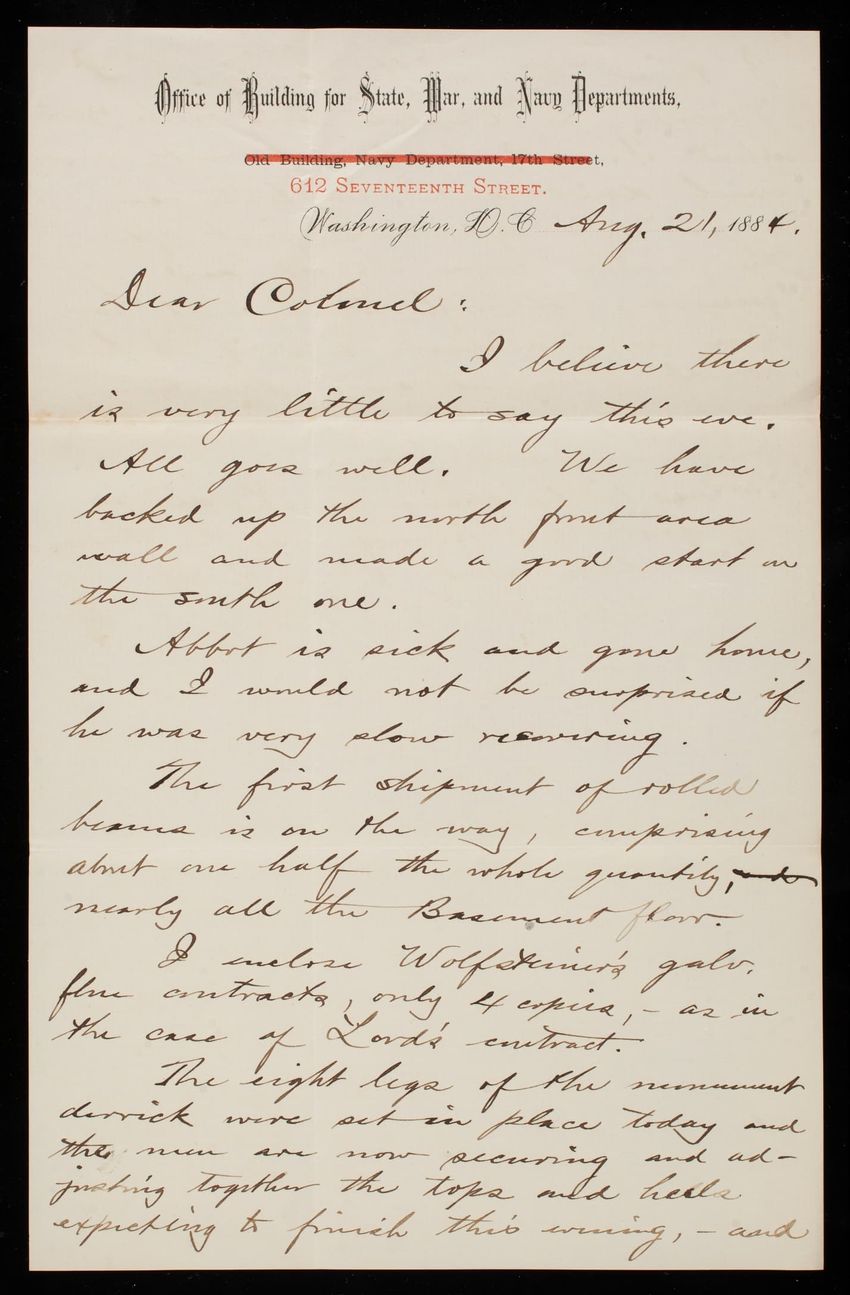 Office of Building for State, War, and Navy Departments,
Old Building, Navy Department, 17th Street,
612 Seventeenth Street.
Washington, D.C. Aug. 21, 1884.
Dear Colonel:
I believe there
is very little to say this eve.
All goes well. We have
backed up the north front area
wall and made a good start on
the south one.
Abbot is sick and gone home,
and I would not be surprised if
he was very slow recovering.
The first shipment of rolled
beams is on the way, comprising
about one half the whole quantity, and
nearly all the Basement floor.
I enclose Wolfsteiner's galv.
flue contracts, only 4 copies, - as in
the case of Lord's contract.
The eight legs of the monument
derrick were set in place today and
the men are now securing and ad-
justing together the tops and heels
expecting to finish this evening, - and